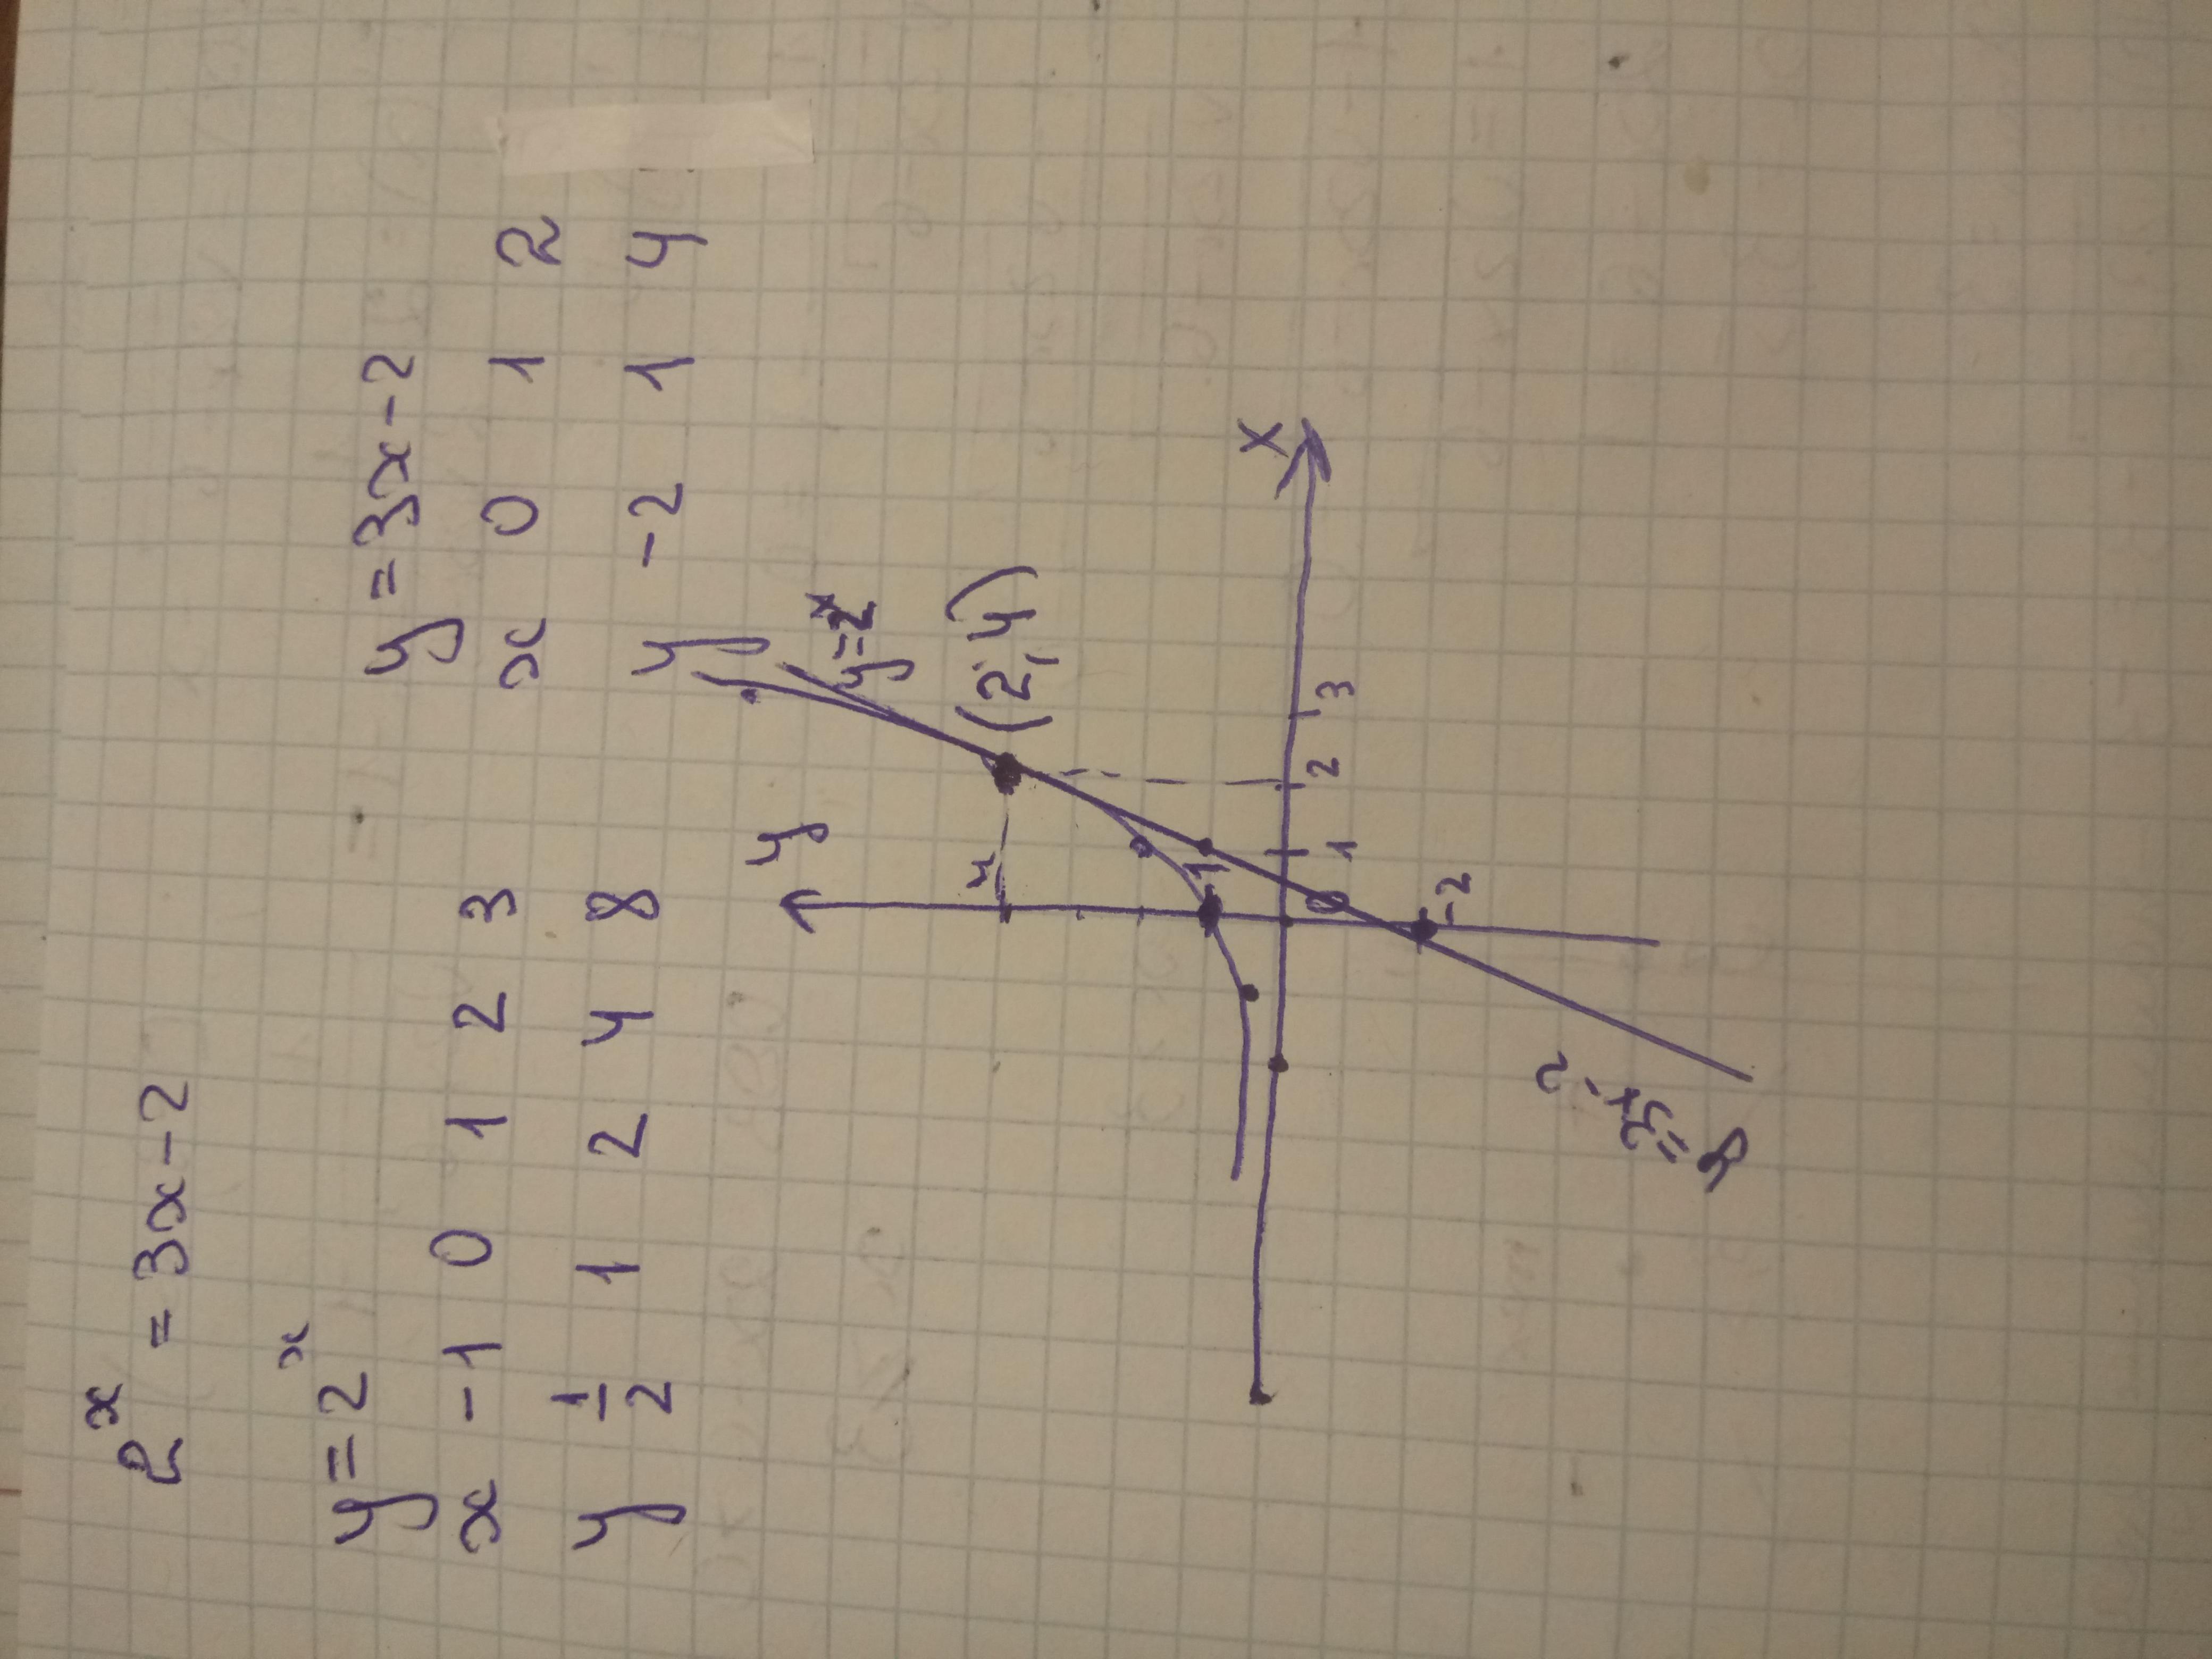 2ˣ = 3x-2
y=2ˣ
x -1 0 1 2 3
y 1/2 1 2 4 8
y=3x-2
x 0 1 2
y -2 1 4
y
y=2ˣ
4
(2;4)
1
x
0 1 2 3
-2
y=3x-2